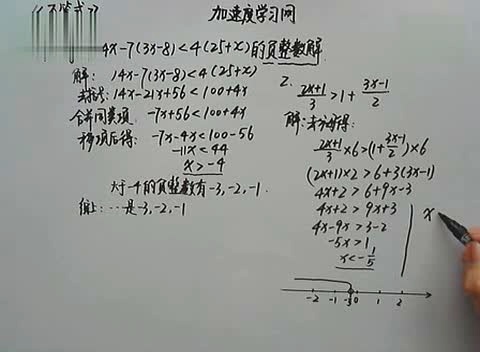 《不等式》
加速度学习网
4x-7(3x-8)<4(25+x)的负整数解.
解: 14x-7(3x-8)<4(25+x)
去括号: 14x-21x+56<100+4x
合并同类项 -7x+56<100+4x
移项后得: -7x-4x<100-56
-11x<44
x>-4
大于-4的负整数有-3,-2,-1.
综上:…是-3,-2,-1
2. (2x+1)/3>1+(3x-1)/2
解:去分母得:
(2x+1)/3×6>(1+(3x-1)/2)×6
(2x+1)×2>6+3(3x-1)
4x+2>6+9x-3
4x+2>9x+3
4x-9x>3-2
-5x>1
x<-1/5
x
-2 -1 0 1 2